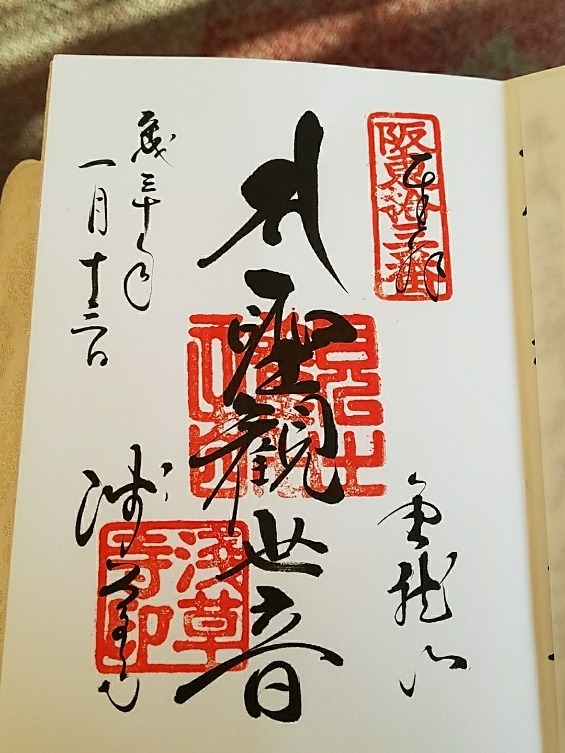 阪東拾三番
奉拝
金龍山
聖観世音
平成三十年
一月十二日
浅草寺
浅草寺印